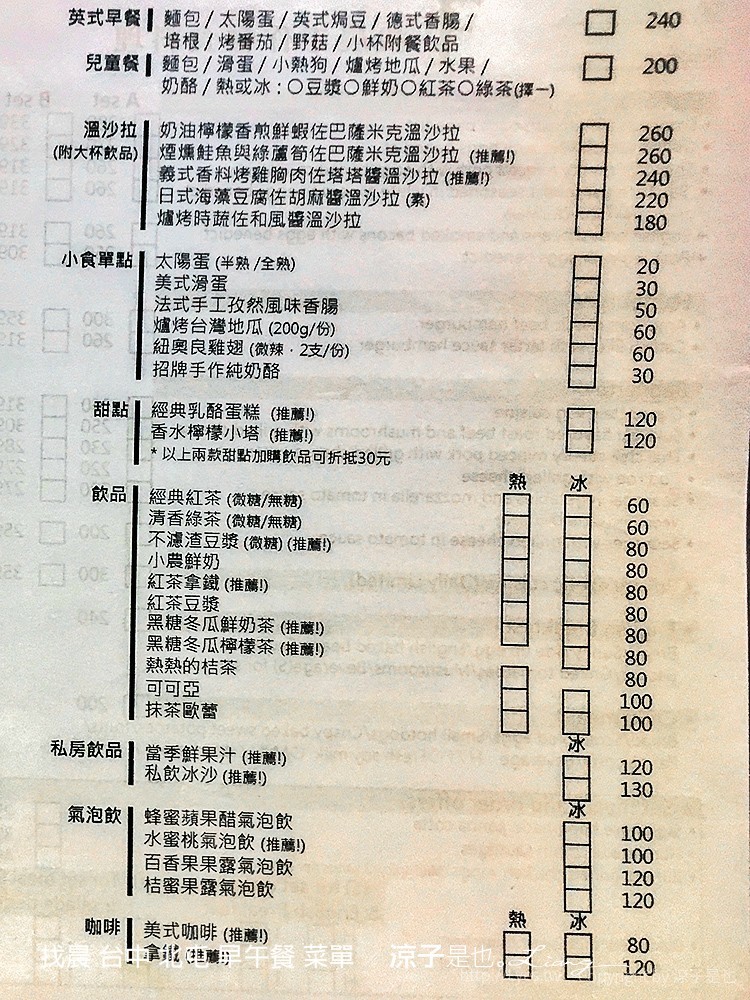 英式早餐 麵包/太陽蛋/英式焗豆/德式香腸/ 240
培根/烤番茄/野菇/小杯附餐飲品
兒童餐 麵包/滑蛋/小熱狗/爐烤地瓜/水果/ 200
奶酪/熱或冰:○豆漿○鮮奶○紅茶○綠茶(擇一)
溫沙拉 奶油檸檬香煎鮮蝦佐巴薩米克溫沙拉 260
(附大杯飲品) 煙燻鮭魚與綠蘆筍佐巴薩米克溫沙拉 (推薦!) 260
義式香料烤雞胸肉佐塔塔醬溫沙拉 (推薦!) 240
日式海藻豆腐佐胡麻醬溫沙拉 (素) 220
爐烤時蔬佐和風醬溫沙拉 180
小食單點 太陽蛋 (半熟/全熟) 20
美式滑蛋 30
法式手工孜然風味香腸 50
爐烤台灣地瓜 (200g/份) 60
紐奧良雞翅 (微辣・2支/份) 60
招牌手作純奶酪 30
甜點 經典乳酪蛋糕 (推薦!) 120
香水檸檬小塔 (推薦!) 120
* 以上兩款甜點加購飲品可折抵30元
熱 冰
飲品 經典紅茶 (微糖/無糖) 60
清香綠茶 (微糖/無糖) 60
不濾渣豆漿 (微糖) (推薦!) 80
小農鮮奶 80
紅茶拿鐵 (推薦!) 80
紅茶豆漿 80
黑糖冬瓜鮮奶茶 (推薦!) 80
黑糖冬瓜檸檬茶 (推薦!) 80
熱熱的桔茶 80
可可亞 100
抹茶歐蕾 100
冰
私房飲品 當季鮮果汁 (推薦!) 120
私飲冰沙 (推薦!) 130
冰
氣泡飲 蜂蜜蘋果醋氣泡飲 100
水蜜桃氣泡飲 (推薦!) 100
百香果果露氣泡飲 120
桔蜜果露氣泡飲 120
熱 冰
咖啡 美式咖啡 (推薦!) 80
拿鐵 (推薦!) 120
找農 台中 北屯 早午餐 菜單 涼子是也